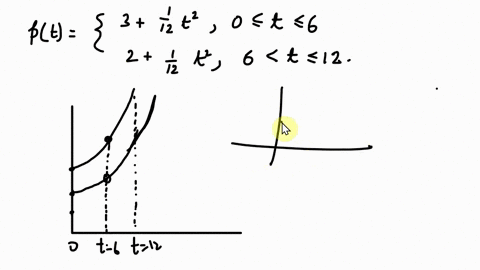 p(t) = { 3 + 1/12 t², 0 ≤ t ≤ 6
2 + 1/12 t², 6 < t ≤ 12.
0 t=6 t=12